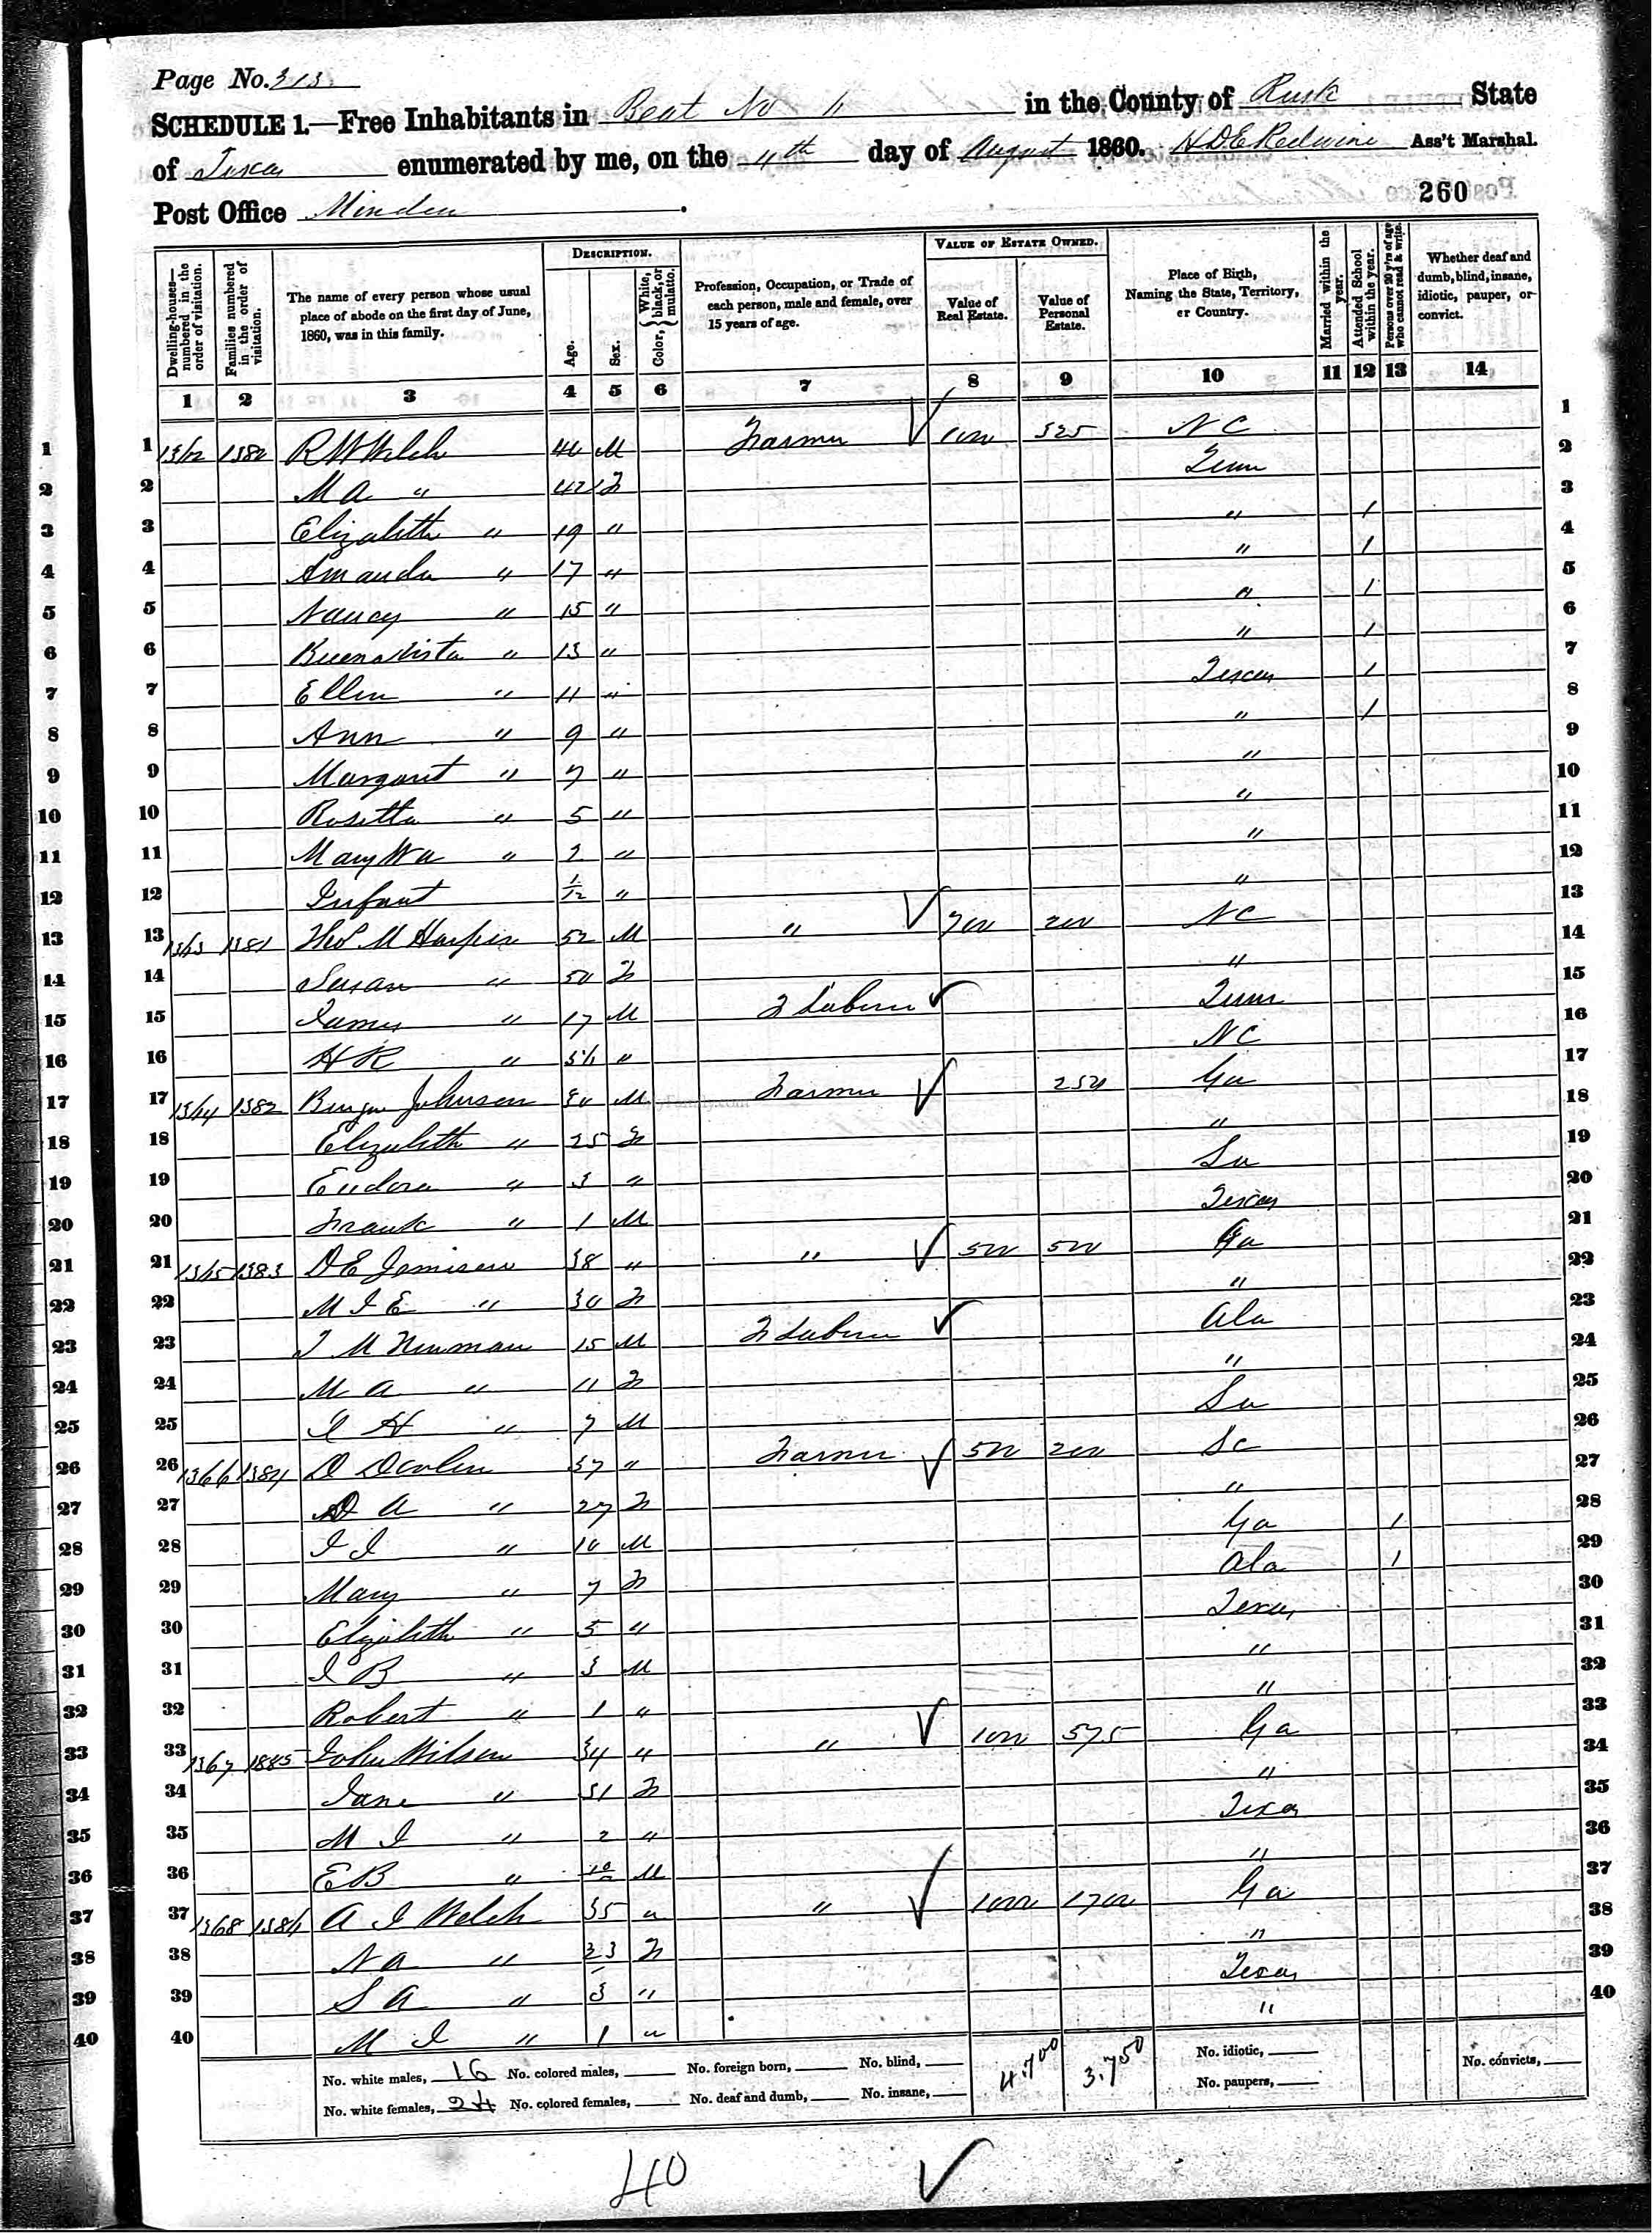 Page No. 313
SCHEDULE 1.—Free Inhabitants in Beat No 11 in the County of Rusk State
of Texas enumerated by me, on the 4th day of August 1860. H D E Redwine Ass't Marshal.
260
Post Office Minden
Dwelling-houses—numbered in the order of visitation.
Families numbered in the order of visitation.
The name of every person whose usual place of abode on the first day of June, 1860, was in this family.
DESCRIPTION.
Age.
Sex.
Color, White, black, or mulatto.
Profession, Occupation, or Trade of each person, male and female, over 15 years of age.
VALUE OF ESTATE OWNED.
Value of Real Estate.
Value of Personal Estate.
Place of Birth, Naming the State, Territory, or Country.
Married within the year.
Attended School within the year.
Persons over 20 y'rs of age who cannot read & write.
Whether deaf and dumb, blind, insane, idiotic, pauper, or convict.
1 2 3 4 5 6 7 8 9 10 11 12 13 14
1 1380 R W Welch 46 M Farmer 1000 325 NC
2 M A " 42 F Tenn
3 Elizabeth " 19 " " 1
4 Amanda " 17 " " 1
5 Nancy " 15 " " 1
6 Buena Vista " 13 " " 1
7 Ellen " 11 " Texas 1
8 Ann " 9 " " 1
9 Margaret " 7 " "
10 Rosetta " 5 " "
11 Mary " 2 " "
12 Infant 1/12 " "
13 1381 Thos M 52 M " 700 200 NC
14 Susan " 50 F "
15 James " 17 M F Laborer Tenn
16 H R " " NC
17 1382 Johnson 30 M Farmer 250 Ga
18 Elizabeth " 25 F "
19 Eudora " 3 " La
20 Frank " 1 M Texas
21 1383 D E Jamison 38 " " 500 500 Ga
22 M J E " 30 F "
23 J M Newman 15 M F Laborer Ala
24 M A " 11 F "
25 J H " 7 M La
26 1366 1384 D 37 " Farmer 500 200 SC
27 D A " 27 F "
28 J J " 10 M Ga 1
29 Mary " 7 F Ala 1
30 Elizabeth " 5 " Texas
31 J B " 3 M "
32 Robert " 1 " "
33 1367 1385 John Wilson 34 " " 1000 575 Ga
34 Jane " 31 F "
35 M J " 2 " Texas
36 E B " 10/12 M "
37 1368 1386 A J Welch 35 " " 1000 1700 Ga
38 N A " 23 F "
39 S A " 3 " Texas
40 M J " 1 " "
No. white males, 16 No. colored males, No. foreign born, No. blind, 4.700 3.750 No. idiotic, No. convicts,
No. white females, 24 No. colored females, No. deaf and dumb, No. insane, No. paupers,
40